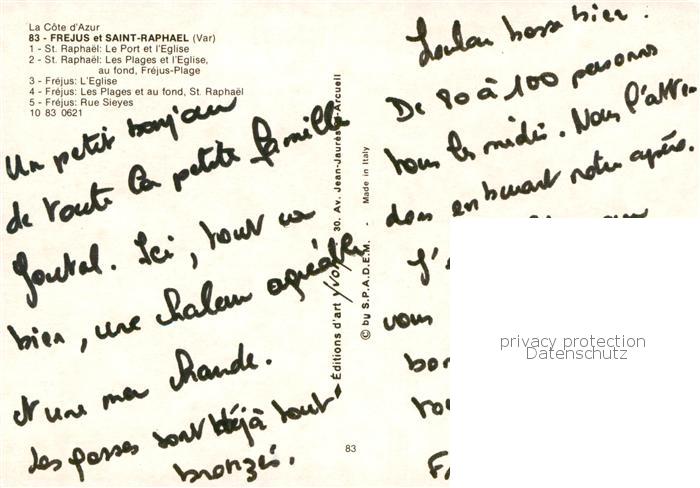 La Côte d'Azur
83 - FREJUS et SAINT-RAPHAEL (Var)
1 - St. Raphaël: Le Port et l'Eglise
2 - St. Raphaël: Les Plages et l'Eglise,
au fond, Fréjus-Plage
3 - Fréjus: L'Eglise
4 - Fréjus: Les Plages et au fond, St. Raphaël
5 - Fréjus: Rue Sieyes
10 83 0621
Un petit bonjour
de toute la petite famille
Ici, tout va
bien, une chaleur agréable
et une mer chaude.
Les gosses sont déjà tout
bronzés.
Editions d'art yvon - 30, Av. Jean-Jaurès - Arcueil
© by S.P.A.D.E.M. - Made in Italy
83
bosse bien.
De 80 à 100 personnes
tous les midis. Nous l'atten
dons en buvant notre apéro.
J'
vous
privacy protection
Datenschutz